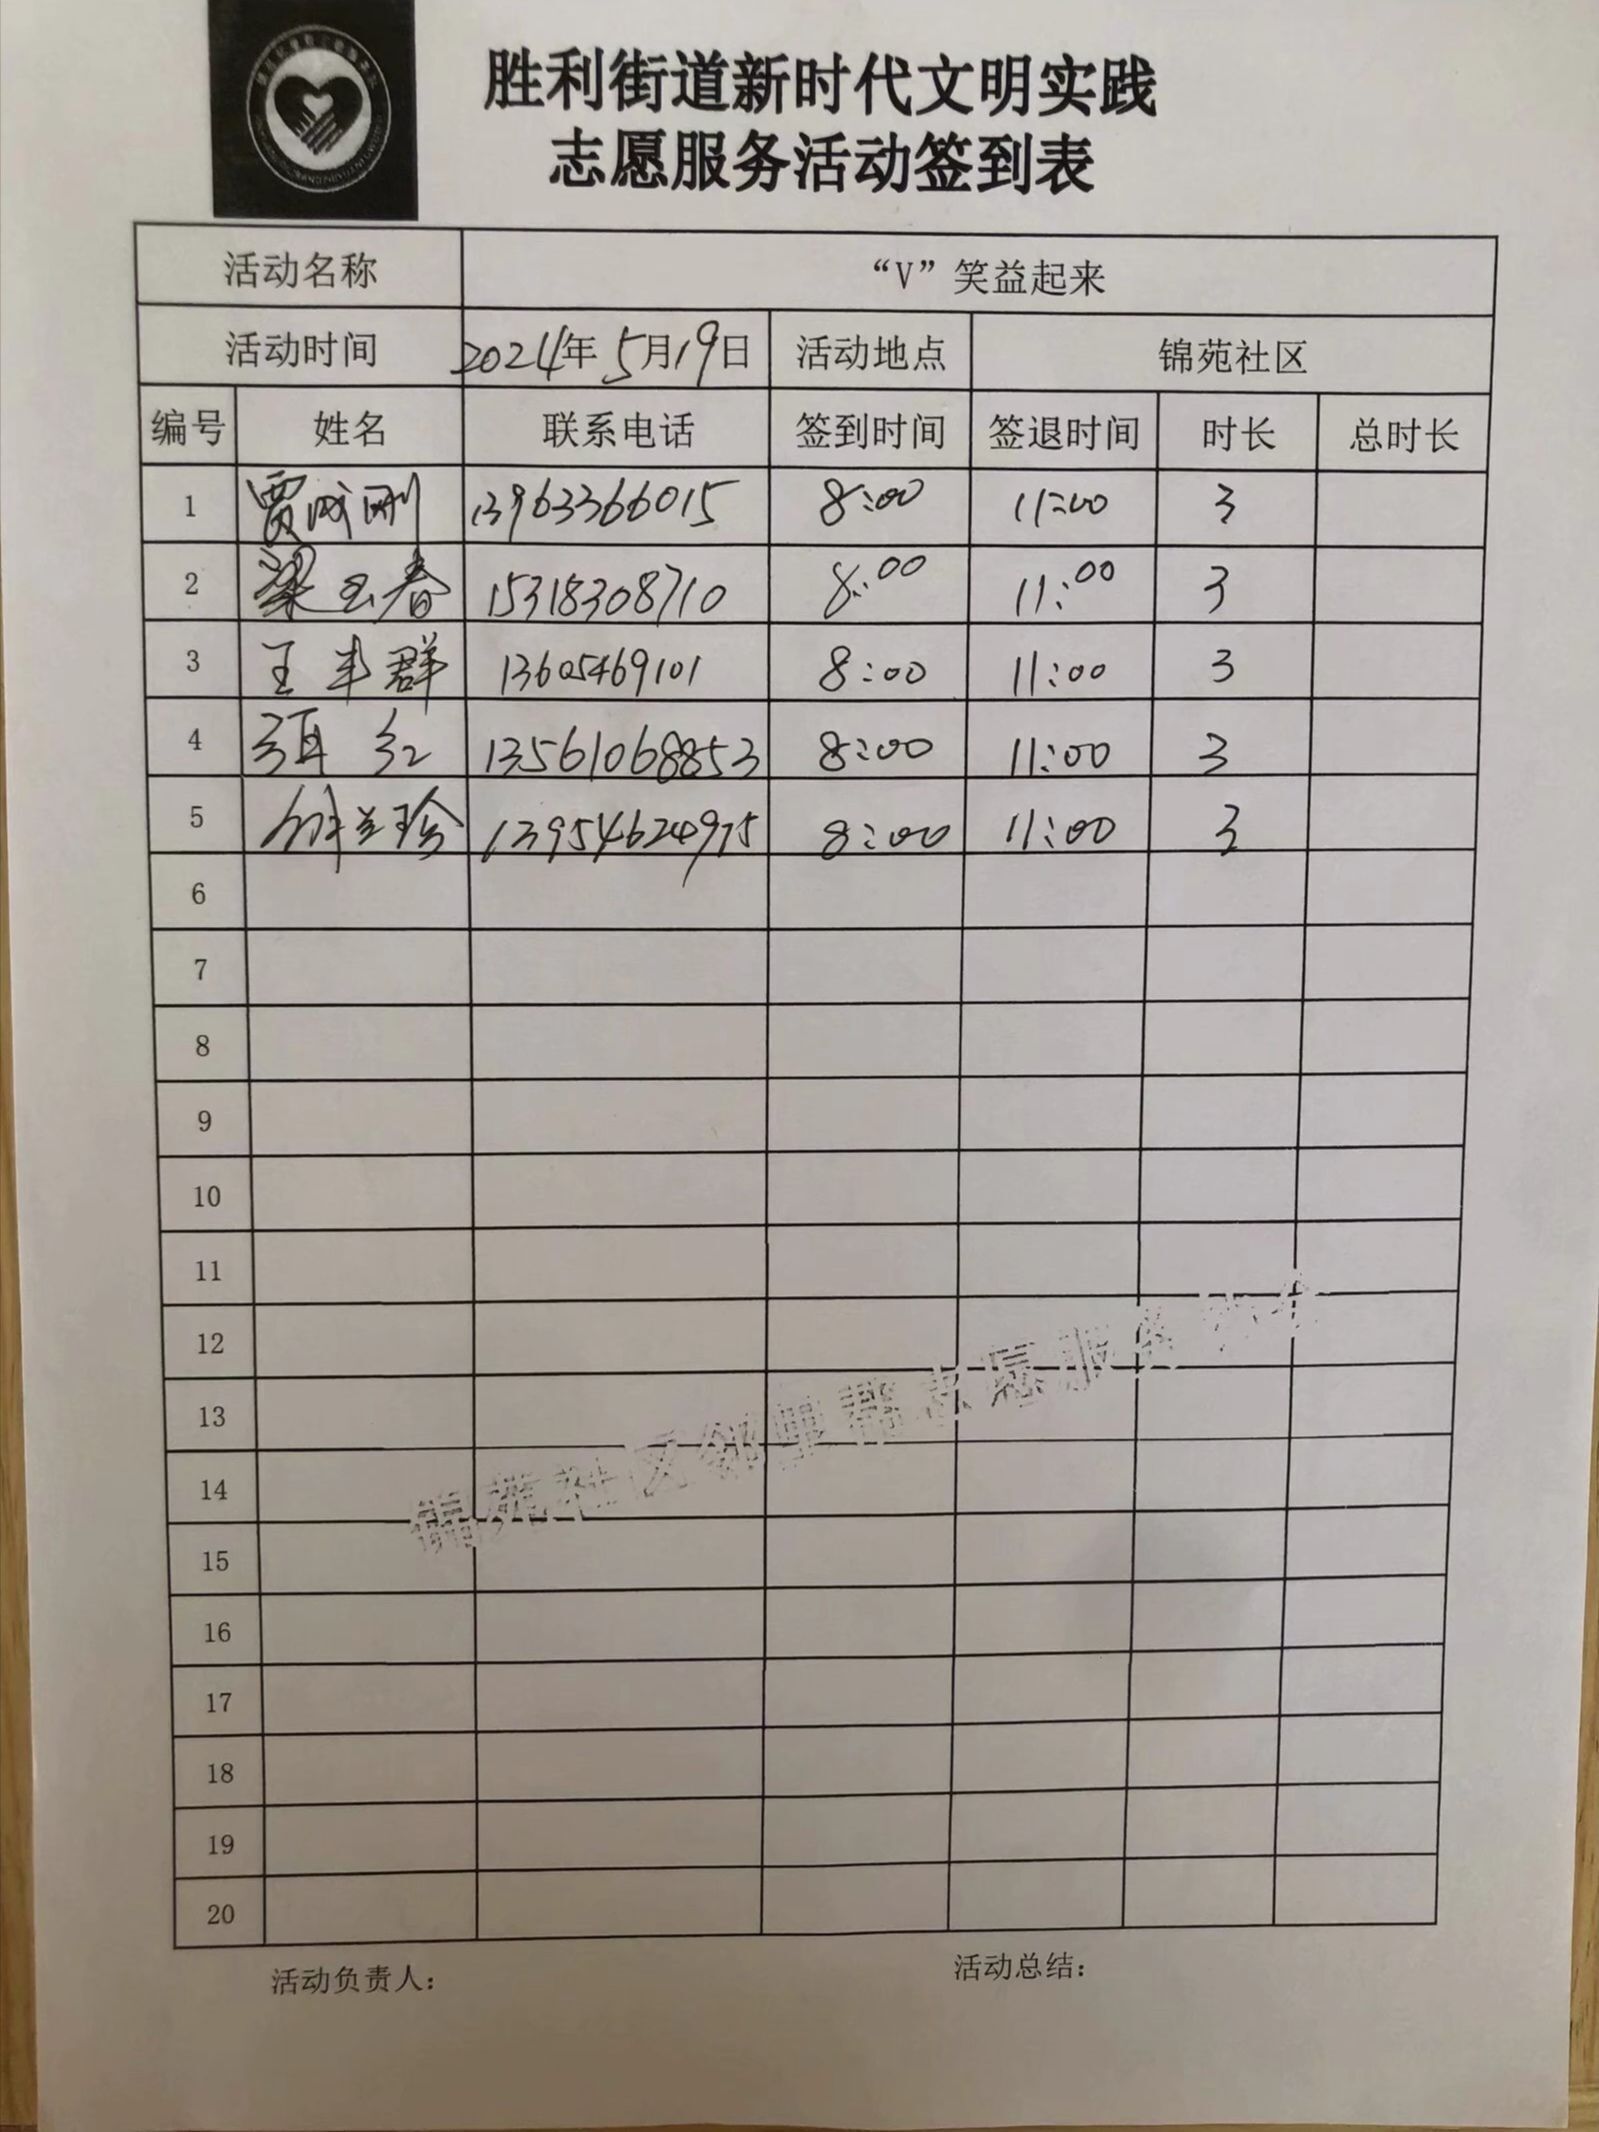 胜利街道新时代文明实践
志愿服务活动签到表
活动名称 “V”笑益起来
活动时间 2024年5月19日 活动地点 锦苑社区
编号 姓名 联系电话 签到时间 签退时间 时长 总时长
1 贾成刚 13963366015 8:00 11:00 3
2 梁玉春 15318308710 8:00 11:00 3
3 王丰群 13605469101 8:00 11:00 3
4 红 13561068853 8:00 11:00 3
5 兰珍 13954624975 8:00 11:00 3
6
7
8
9
10
11
12
13
14
15
16
17
18
19
20
锦苑社区邻里帮志愿服务
活动负责人： 活动总结：